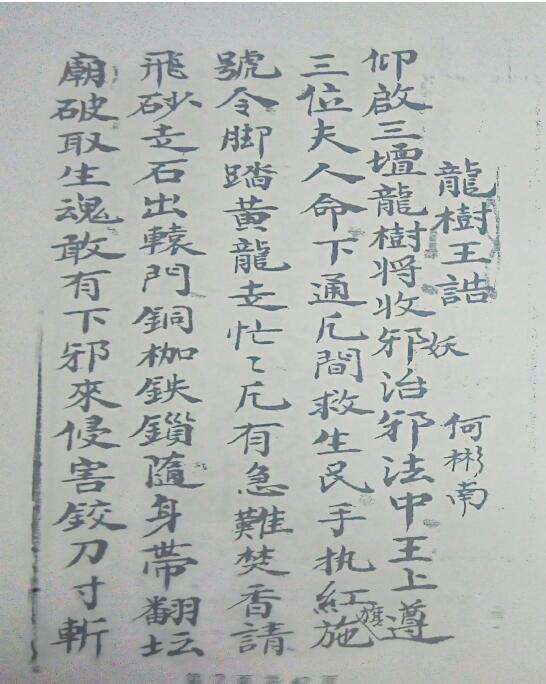 龍樹王誥
何彬南
仰啟三壇龍樹將收邪治邪法中王上遵
妖
三位夫人命下通凡間救生民手执紅施
旗
號令脚踏黃龍走忙忙凡有急難焚香請
飛砂走石出轅門銅枷鉄鎖隨身帶翻坛
廟破取生魂敢有下邪來侵害鉸刀寸斬